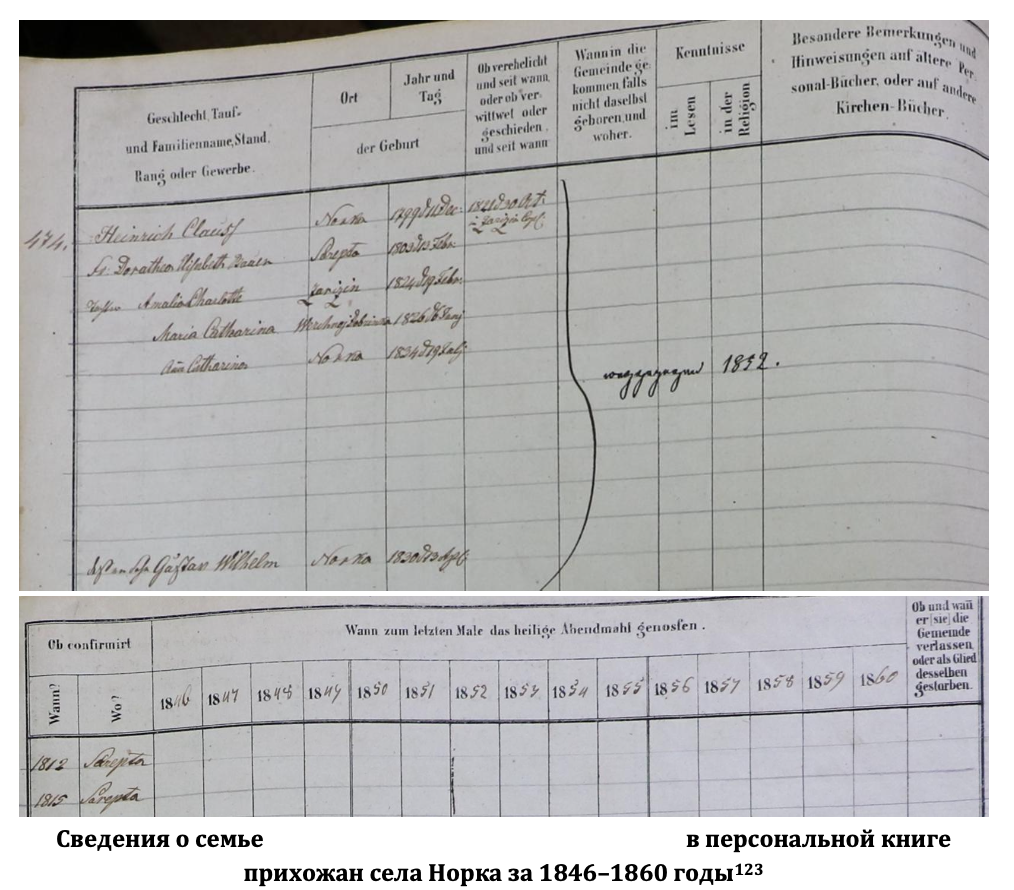 Geschlecht, Tauf-
und Familienname, Stand,
Rang oder Gewerbe.
Ort
Jahr und
Tag
der Geburt
Ob verehelicht
und seit wann,
oder ob ver-
wittwet oder
geschieden,
und seit wann
Wann in die
Gemeinde ge-
kommen, falls
nicht daselbst
geboren, und
woher.
Kenntnisse
im
Lesen
in der
Religion
Besondere Bemerkungen und
Hinweisungen auf ältere Per-
sonal-Bücher, oder auf andere
Kirchen-Bücher.
474. Heinrich Clauss Norka 1799 d 11 Dec.
Fr. Dorathea Elisabeth Sarepta 1803 d 13 Febr.
Amalia Charlotte Zarizin 1824 d 19 Febr.
Maria Catharina 1826 d 6
Catharina Norka 1834 d 19
weggezogen 1852.
Gustav Wilhelm Norka 1830 d 13
Ob confirmirt
Wann?
Wo?
Wann zum letzten Male das heilige Abendmahl genossen.
1846 1847 1848 1849 1850 1851 1852 1853 1854 1855 1856 1857 1858 1859 1860
Ob und wann
er (sie) die
Gemeinde
verlassen,
oder als Glied
desselben
gestorben.
1812 Sarepta
1815 Sarepta
Сведения о семье в персональной книге
прихожан села Норка за 1846–1860 годы¹²³